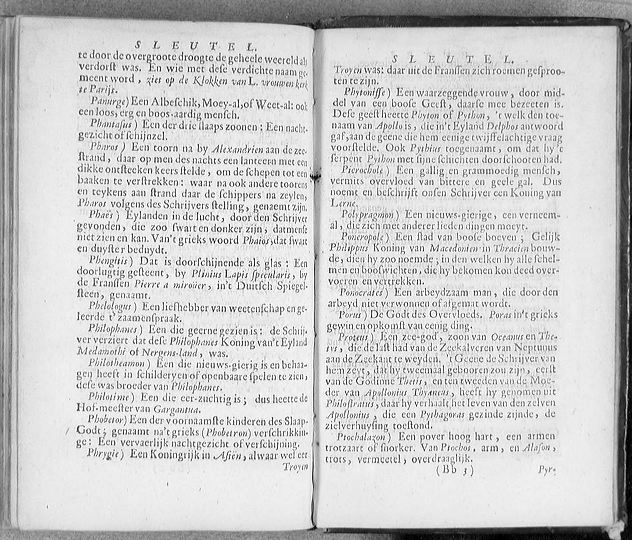 SLEUTEL.
te door de overgroote droogte de geheele weereld als
verdorst was. En wie met dese verdichte naam ge-
meent word, ziet op de Klokken van L. vrouwen kerk
te Parijs.
Panurge) Een Albeschik, Moey-al, of Weet-al: ook
een loos, erg en boos-aardig mensch.
Phantasus) Een der drie slaaps zoonen: Een nacht-
gezicht of schijnzel.
Pharos) Een toorn na by Alexandrien aan de zee-
strand, daar op men des nachts een lanteern met een
dikke ontsteeken keers stelde, om de schepen tot een
baaken te verstrekken: waar na ook andere toorens
en teykens aan strand daar de schippers na zeylen,
Pharos volgens des Schrijvers stelling, genaemt zijn.
Phaës) Eylanden in de lucht, door den Schrijver
gevonden, die zoo swart en donker zijn, datmense
niet zien en kan. Van't grieks woord Phaios, dat swart
en duyster beduydt.
Phengitis) Dat is doorschijnende als glas: Een
doorlugtig gesteent, by Plinius Lapis specularis, by
de Franssen Pierre a miroüer, in't Duitsch Spiegel-
steen, genaamt.
Philologus) Een liefhebber van weetenschap en ge-
leerde t'zaamenspraak.
Philophanes) Een die geerne gezien is: de Schrij-
ver verziert dat dese Philophanes Koning van't Eyland
Medamothi of Nergens-land, was.
Philotheamon) Een die nieuws-gierig is en behaa-
gen heeft in schilderyen of openbaare spelen te zien,
dese was broeder van Philophanes.
Philotime) Een die eer-zuchtig is; dus heette de
Hof-meester van Gargantua.
Phobetor) Een der voornaamste kinderen des Slaap-
Godt; genaamt na't grieks (Phobetron) verschrikkin-
ge: Een vervaerlijk nachtgezicht of verschijning.
Phrygie) Een Koningrijk in Asiën, alwaar wel eer
Troyen
SLEUTEL.
Troyen was: daar uit de Franssen zich roemen gesproo-
ten te zijn.
Phytonisse) Een waarzeggende vrouw, door mid-
del van een boose Geest, daarse mee bezeeten is.
Dese geest heette Phyton of Python, 't welk den toe-
naam van Apollo is, die in't Eyland Delphos antwoord
gaf, aan de geene die hem eenige twijfelachtige vraag
voorstelde. Ook Pythius toegenaamt, om dat hy't
serpent Python met sijne schichten doorschooten had.
Pierochole) Een gallig en grammoedig mensch,
vermits overvloed van bittere en geele gal. Dus
noemt en beschrijft onsen Schrijver een Koning van
Lerne.
Polypragmon) Een nieuws-gierige, een verneem-
al, die zich met anderer lieden dingen moeyt.
Poneropole) Een stad van boose boeven; Gelijk
Philippus Koning van Macedonien in Thracien bouw-
de, dien hy zoo noemde; in den welken hy alle schel-
men en booswichten, die hy bekomen kon deed over-
voeren en vertrekken.
Ponocrates) Een arbeydzaam man, die door den
arbeyd niet verwonnen of afgemat wordt.
Porus) De God des Overvloeds. Poros in't grieks
gewin en opkomst van eenig ding.
Proteus) Een zee-god, zoon van Oceanus en The-
tis, die de last had van de Zeekalveren van Neptunus
aan de Zeekant te weyden. 't Geene de Schrijver van
hem zeyt, dat hy tweemaal gebooren zou zijn, eerst
van de Godinne Thetis, en ten tweeden van de Moe-
der van Apollonius Thyaneus, heeft hy genomen uit
Philostratus, daar hy verhaalt het leven van den zelven
Apollonius, die een Pythagoras gezinde zijnde, de
zielverhuysing toestond.
Ptochalazon) Een pover hoog hart, een armen
trotzaart of snorker. Van Ptochos, arm, en Alason,
trots, vermeetel, overdraaglijk.
(Bb 3) Pyr-